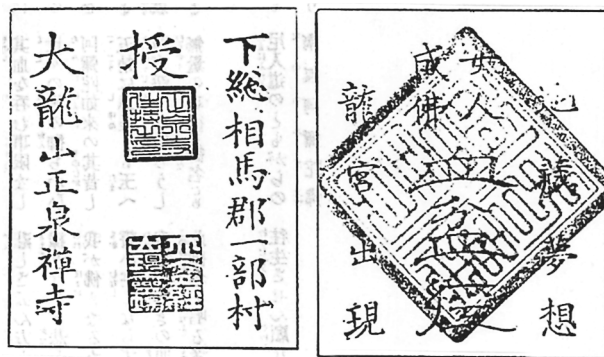 地藏夢想
女人
成佛
血盆經
龍宮出現
下総相馬郡一部村
授
大龍山正泉禪寺